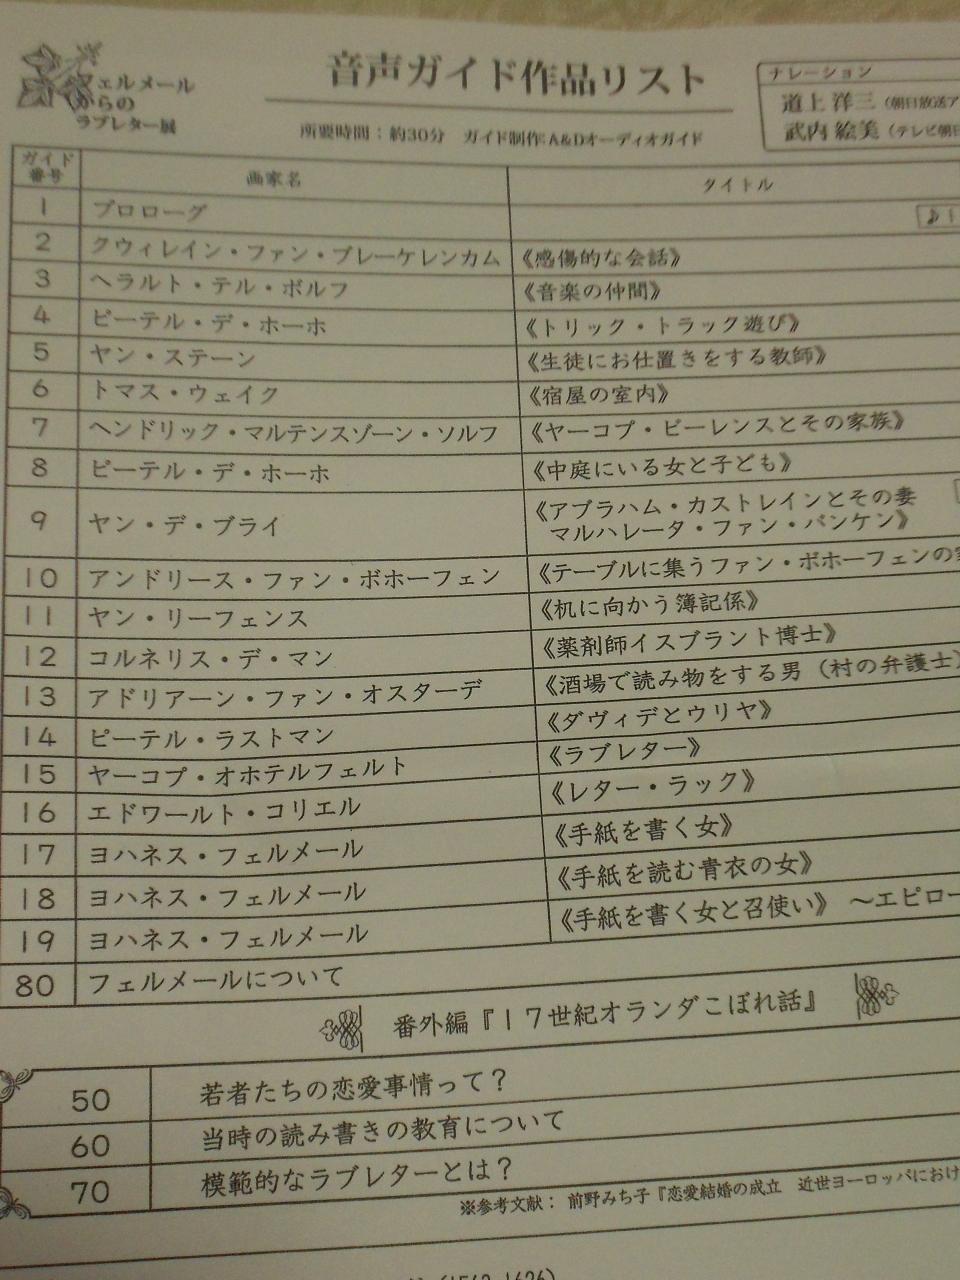 フェルメール
からの
ラブレター展
音声ガイド作品リスト
所要時間:約30分 ガイド制作:A&Dオーディオガイド
ナレーション
道上 洋三(朝日放送ア
武内 絵美(テレビ朝日
ガイド番号 画家名 タイトル
1 プロローグ
2 クウィレイン・ファン・ブレーケレンカム 《感傷的な会話》
3 ヘラルト・テル・ボルフ 《音楽の仲間》
4 ピーテル・デ・ホーホ 《トリック・トラック遊び》
5 ヤン・ステーン 《生徒にお仕置きをする教師》
6 トマス・ウェイク 《宿屋の室内》
7 ヘンドリック・マルテンスゾーン・ソルフ 《ヤーコプ・ビーレンスとその家族》
8 ピーテル・デ・ホーホ 《中庭にいる女と子ども》
9 ヤン・デ・ブライ 《アブラハム・カストレインとその妻
マルハレータ・ファン・バンケン》
10 アンドリース・ファン・ボホーフェン 《テーブルに集うファン・ボホーフェンの
11 ヤン・リーフェンス 《机に向かう簿記係》
12 コルネリス・デ・マン 《薬剤師イスブラント博士》
13 アドリアーン・ファン・オスターデ 《酒場で読み物をする男(村の弁護士)
14 ピーテル・ラストマン 《ダヴィデとウリヤ》
15 ヤーコプ・オホテルフェルト 《ラブレター》
16 エドワールト・コリエル 《レター・ラック》
17 ヨハネス・フェルメール 《手紙を書く女》
18 ヨハネス・フェルメール 《手紙を読む青衣の女》
19 ヨハネス・フェルメール 《手紙を書く女と召使い》 ~エピロー
80 フェルメールについて
番外編『17世紀オランダこぼれ話』
50 若者たちの恋愛事情って?
60 当時の読み書きの教育について
70 模範的なラブレターとは?
※参考文献: 前野みち子『恋愛結婚の成立 近世ヨーロッパにおけ